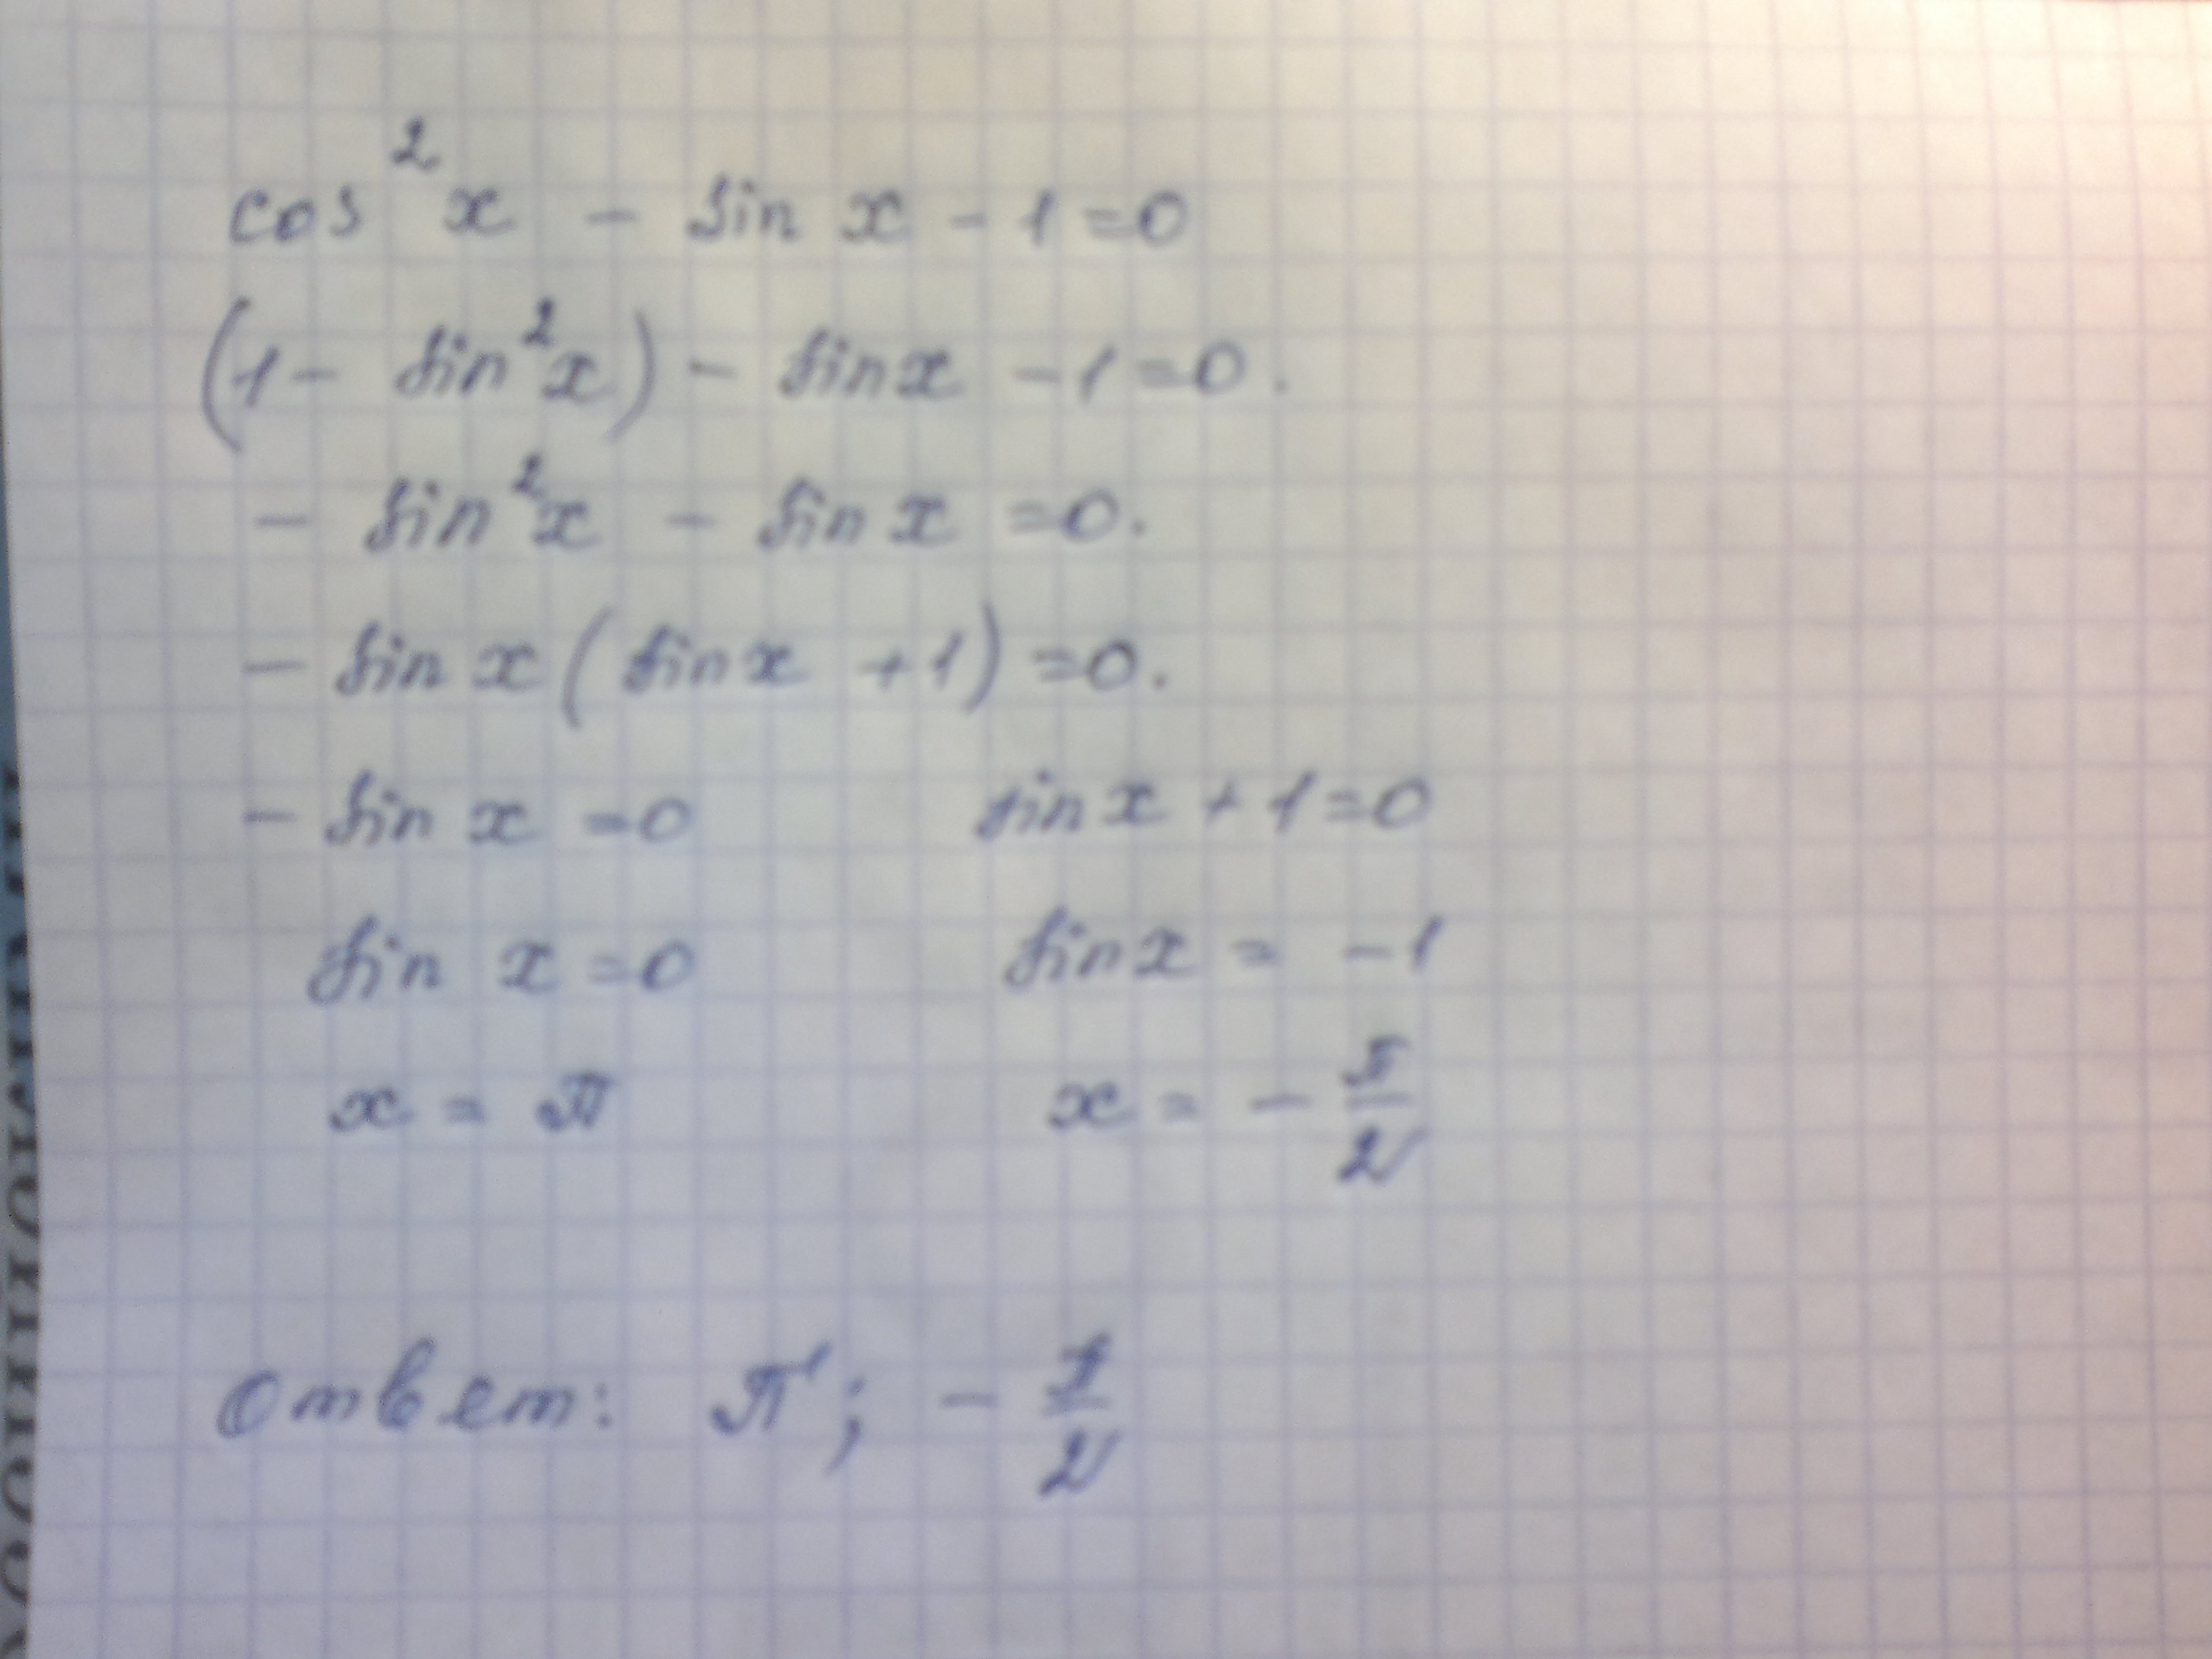 cos²x - sin x - 1 = 0
(1 - sin²x) - sin x - 1 = 0.
- sin²x - sin x = 0.
- sin x (sin x + 1) = 0.
- sin x = 0 sin x + 1 = 0
sin x = 0 sin x = -1
x = π x = - π/2
Ответ: π; - π/2